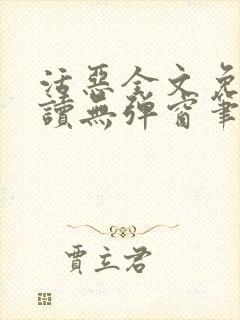 活惡全文免
讀無彈窗筆
賈立君